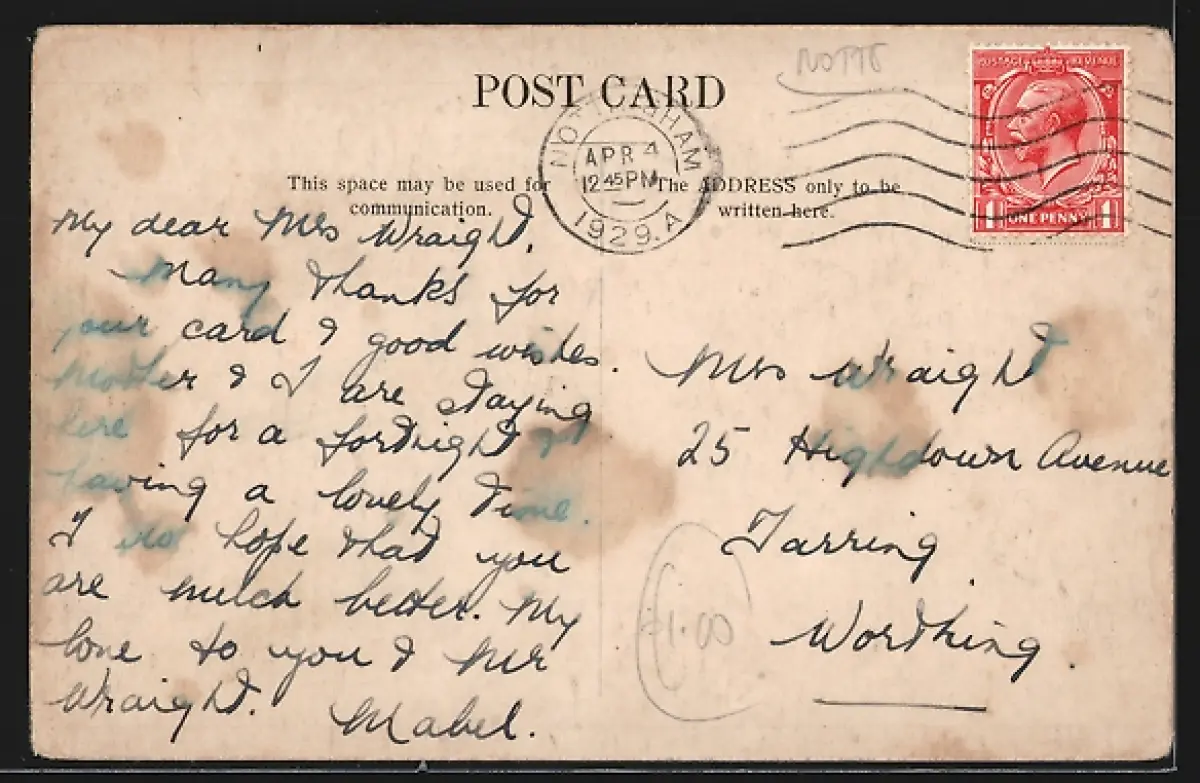 NOTTS
POST CARD
POSTAGE REVENUE
ONE PENNY
1 1
NOTTINGHAM
APR 4
12 45 PM
1929. A
This space may be used for
communication.
The ADDRESS only to be
written here.
My dear Mrs Wraight,
Many thanks for
your card & good wishes.
Mother & I are staying
here for a fortnight
having a lovely time.
I do hope that you
are much better. My
love to you & Mr
Wraight. Mabel.
Mrs Wraight
25 Highdown Avenue
Tarring
Worthing.
1.00